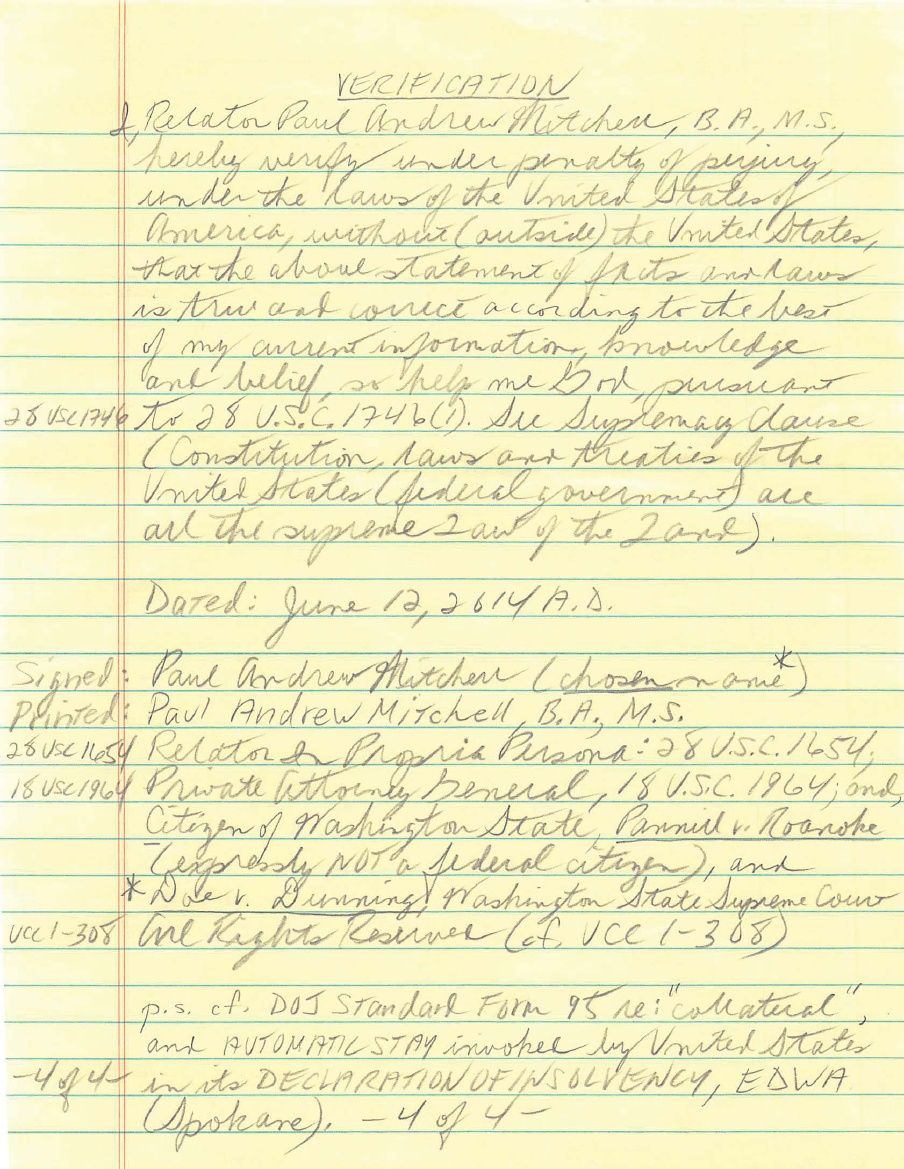 VERIFICATION
I, Relator Paul Andrew Mitchell, B.A., M.S.,
hereby verify under penalty of perjury,
under the laws of the United States of
America, without (outside) the United States,
that the above statement of facts and laws
is true and correct according to the best
of my current information, knowledge
and belief, so help me God, pursuant
28 USC 1746 to 28 U.S.C. 1746(1). See Supremacy Clause
(Constitution, laws and treaties of the
United States (federal government) are
all the supreme Law of the Land).
Dated: June 12, 2014 A.D.
Signed: Paul Andrew Mitchell (chosen name*)
Printed: Paul Andrew Mitchell, B.A., M.S.
28 USC 1654 Relator In Propria Persona: 28 U.S.C. 1654;
18 USC 1964 Private Attorney General, 18 U.S.C. 1964; and,
Citizen of Washington State, Pannill v. Roanoke
(expressly NOT a federal citizen), and
* Doe v. Dunning, Washington State Supreme Court
UCC 1-308 All Rights Reserved (cf. UCC 1-308)
p.s. cf. DOJ Standard Form 95 re: "collateral",
and AUTOMATIC STAY invoked by United States
-4 of 4- in its DECLARATION OF INSOLVENCY, EDWA
(Spokane). -4 of 4-